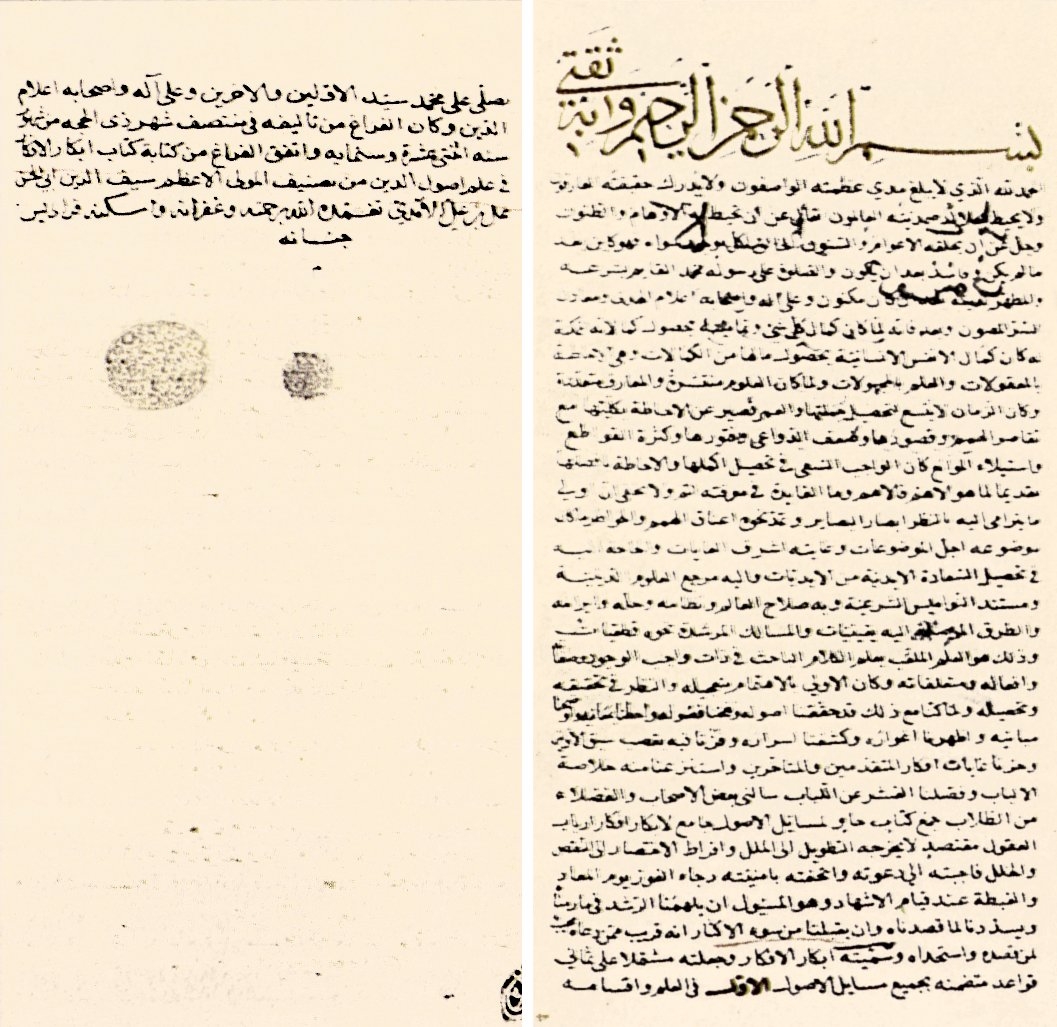 بسم الله الرحمن الرحيم وانه ثقتي
الحمد لله الذي لا يبلغ مدي عظمته الواصفون ولا يدرك حقيقته العارفون
ولا يحيط بجلال صمديته العالمون تعالى عن ان تحيط به الاوهام والظنون
وجل عن ان يخلقه الاعوام والسنون الى الكل سواه فهو كاين بعد
مالم يكن وفاسد بعد ان يكون والصلوة على رسوله محمد القايم بشرعه
وعلى اله واصحابه اعلام الهدى ومعادن
السر المصون وبعد فانه لما كان كمال كل شي وتمامه بحصول كمالاته الممكنة
له كان كمال الانفس الانسانية بحصول مالها من الكمالات وهي الاحاطة
بالمعقولات والعلم بالمجهولات ولما كان العلوم متكثرة والمعارف متعددة
وكان الزمان لا يتسع لتحصيل جملتها والعمر قصير عن الاحاطة بكليتها مع
تقاصر الهمم وقصورها وضعف الدواعي وفتورها وكثرة القواطع
واستيلاء الموانع كان الواجب السعي في تحصيل اكملها والاحاطة بافضلها
تقديما لما هو الاهم فالاهم وما الفايدة في معرفته اتم ولا يخفى ان اولى
ما يترامى اليه بالنظر ابصار البصاير وتمتد نحوه اعناق الهمم والخواطر ما كان
موضوعه اجل الموضوعات وغايته اشرف الغايات والحاجة اليه
في تحصيل السعادة الابدية من الابديات واليه مرجع العلوم الدينية
ومستند النواميس الشرعية وبه صلاح العالم ونظامه وحله وابرامه
والطرق الموصلة اليه يقينيات والمسالك المرشدة نحوه قطعيات
وذلك هو العلم الملقب بعلم الكلام الباحث في ذات واجب الوجود وصفاته
وافعاله ومتعلقاته وكان الاولى بالاهتمام بتعجيله والنظر في تحقيقه
وتحصيله ولما كنا مع ذلك قد حققنا اصوله ونقحنا فصوله واحطنا بمعانيه واوضحنا
مبانيه واظهرنا اغواره وكشفنا اسراره وفزنا فيه بقصب سبق الاولين
وحزنا غايات افكار المتقدمين والمتاخرين واستنزعنا منه خلاصة
الالباب وفصلنا القشر عن اللباب سالني بعض الاصحاب والفضلاء
من الطلاب جمع كتاب حاو لمسايل الاصول جامع لابكار افكار ارباب
العقول مقتصد لا يخرجه التطويل الى الملل وافراط الاختصار الى النقص
والخلل فاجبته الى دعوته واتحفته بامنيته رجاء الفوز يوم المعاد
والغبطة عند قيام الاشهاد وهو المسئول ان يلهمنا الرشد في ما رمناه
ويسددنا لما قصدناه وان يقيلنا من سوء الاكثار انه قريب ممن دعاه مجيب
لمن قصده واستجداه وسميته ابكار الافكار وجعلته مشتملا على ثماني
قواعد متضمنة بجميع مسايل الاصول الاولى في العلم واقسامه
نصلى على محمد سيد الاولين والاخرين وعلى آله واصحابه اعلام
الدين وكان الفراغ من تاليفه في منتصف شهر ذى الحجه من شهور
سنه اثنتى عشرة وستمايه واتفق الفراغ من كتابة كتاب ابكار الافكار
في علم اصول الدين من تصنيف المولى الاعظم سيف الدين ابى الحسن
على بن على الآمدي تغمده الله برحمته وغفرانه واسكنه فراديس
جنانه